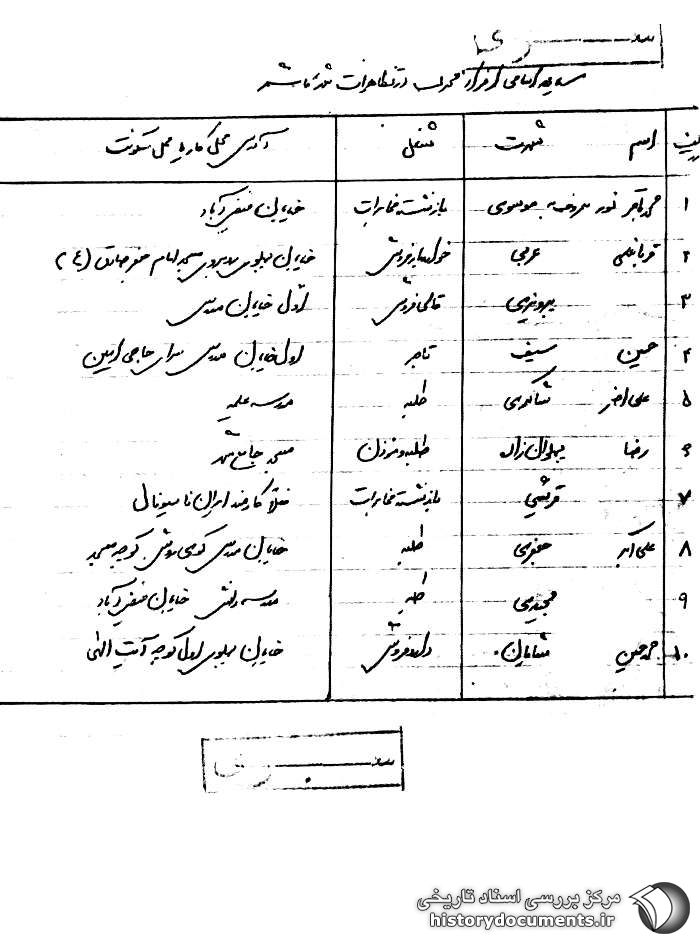 ســـری
اسامی افراد محرک در تظاهرات
ردیف اسم شهرت شغل آدرس محل کار یا محل سکونت
۱ محمد باقر موسوی بازنشسته مخابرات خیابان صفی آباد
۲ قربانعلی عربی خواربارفروش خیابان پهلوی روبروی مسجد امام جعفر صادق (ع)
۳ پرویزی قالی فروش اول خیابان مدرس
۴ حسین سیف تاجر اول خیابان مدرس سرای حاجی امین
۵ علی اصغر شاکری طلبه مدرسه علمیه
۶ رضا پهلوان زاده طلبه مسجد جامع شهر
۷ قرشی بازنشسته مخابرات فعلاً کارمند ایران ناسیونال
۸ علی اکبر جعفری طلبه خیابان مدرس کوی کوچه مسجد
۹ مجیدی طلبه مدرسه خیابان صفی آباد
۱۰ محمد حسین شایان خیابان پهلوی اول کوچه آیت الهی
ســـری
مرکز بررسی اسناد تاریخی
historydocuments.ir